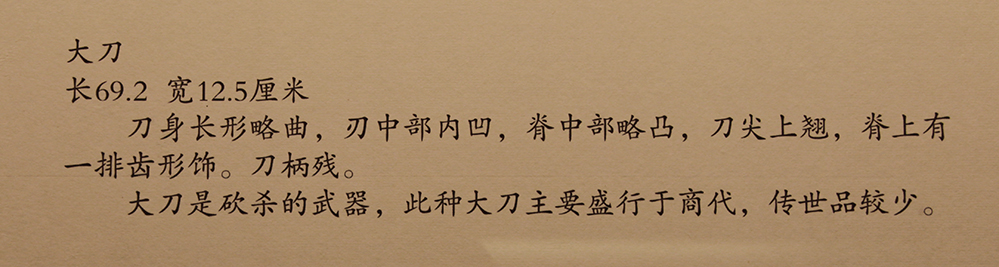 大刀
长69.2 宽12.5厘米
刀身长形略曲，刃中部内凹，脊中部略凸，刀尖上翘，脊上有
一排齿形饰。刀柄残。
大刀是砍杀的武器，此种大刀主要盛行于商代，传世品较少。